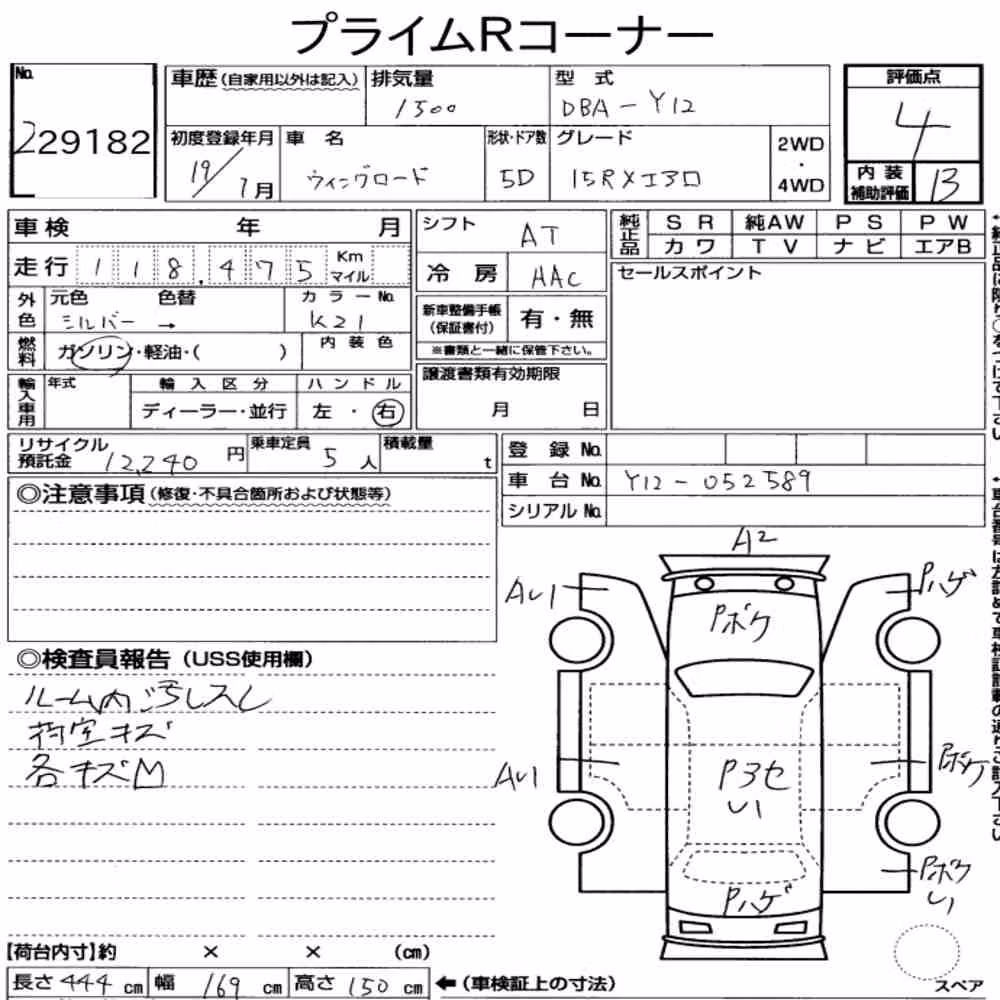 プライムRコーナー
No.
229182
車歴(自家用以外は記入)
排気量
1500
型式
DBA-Y12
評価点
4
初度登録年月
19/7月
車名
ウィングロード
形状・ドア数
5D
グレード
15RXエアロ
2WD
・
4WD
内装
補助評価
B
車検 年 月
走行 118,475 Km マイル
シフト
AT
冷房 HAC
純正品
SR 純AW PS PW
カワ TV ナビ エアB
セールスポイント
外色
元色 色替
シルバー →
カラーNo.
K21
新車整備手帳
(保証書付)
有・無
※書類と一緒に保管下さい。
燃料
ガソリン・軽油・( )
内装色
輸入車用
年式
輸入区分
ディーラー・並行
ハンドル
左・右
譲渡書類有効期限
月 日
リサイクル
預託金 12,240 円
乗車定員
5人
積載量
t
登録No.
車台No. Y12-052589
シリアルNo.
◎注意事項(修復・不具合箇所および状態等)
◎検査員報告(USS使用欄)
ルーム内汚レスレ
荷室キズ
各キズM
A2
Pハゲ
Pボケ
Pボケ
Pボケ
Pハゲ
スペア
【荷台内寸】約 × × (cm)
長さ 444 cm 幅 169 cm 高さ 150 cm
←(車検証上の寸法)